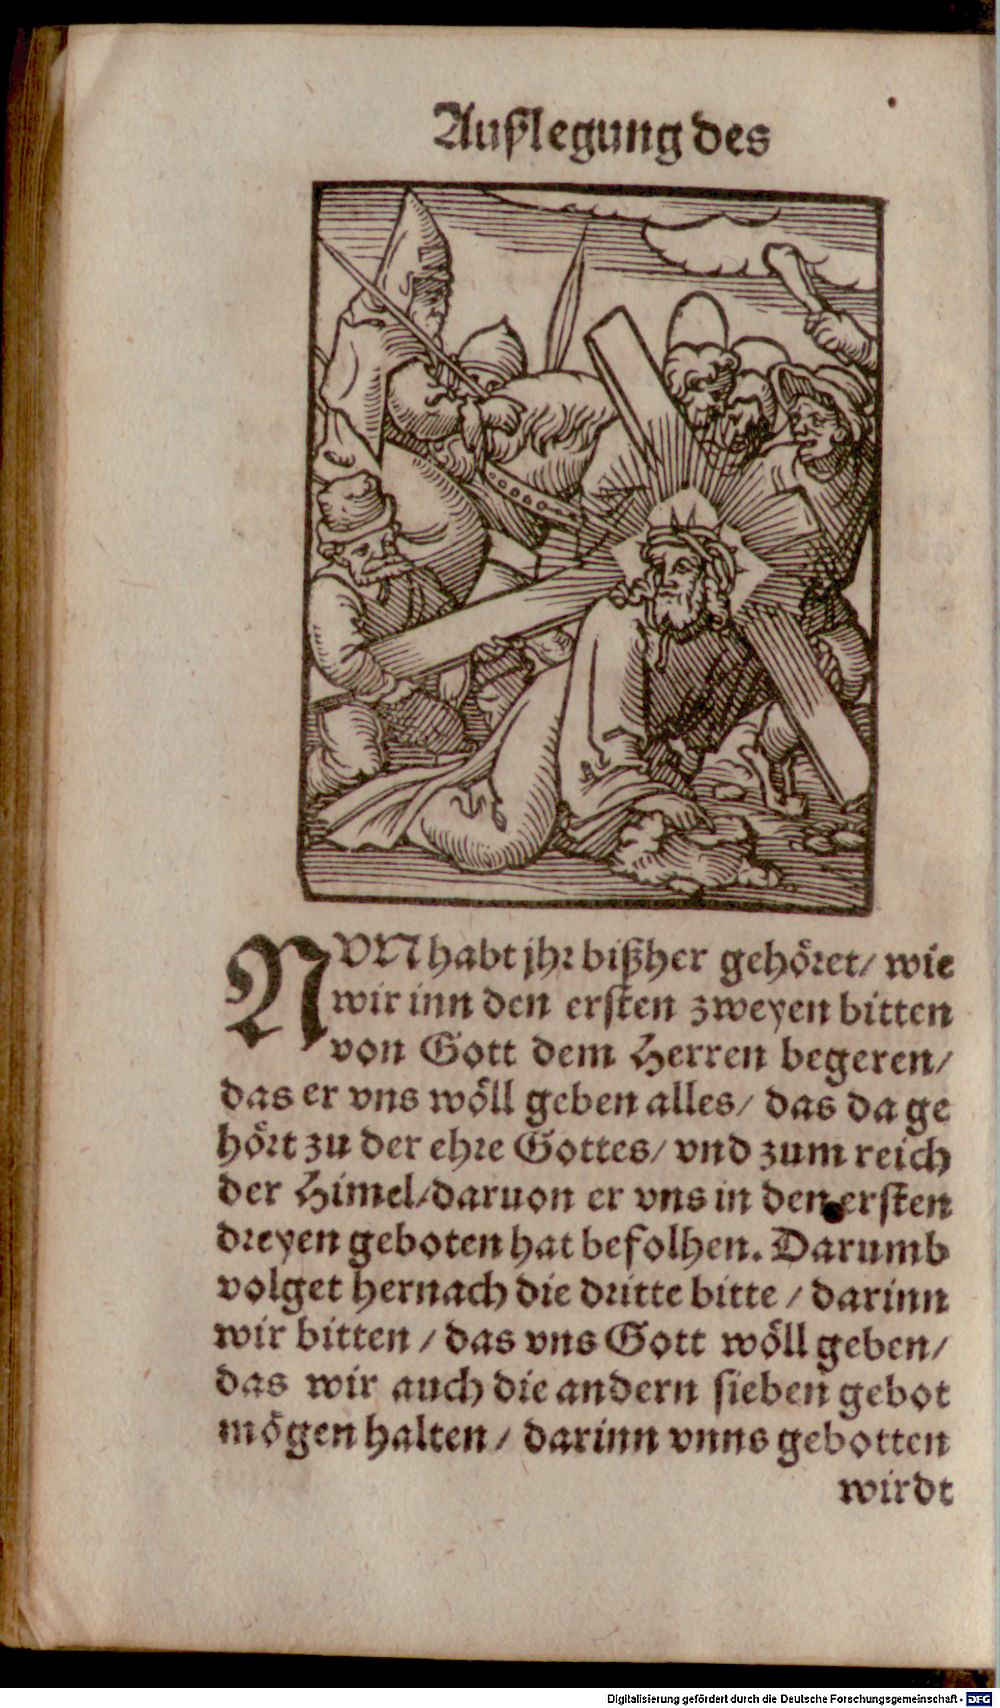 Außlegung des
NVN habt jhr bißher gehöret/ wie
wir inn den ersten zweyen bitten
von Gott dem Herren begeren/
das er vns wöll geben alles/ das da ge
hört zu der ehre Gottes/ vnd zum reich
der Himel/daruon er vns in den ersten
dreyen geboten hat befolhen. Darumb
volget hernach die dritte bitte / darinn
wir bitten / das vns Gott wöll geben/
das wir auch die andern sieben gebot
mögen halten / darinn vnns gebotten
wirdt
Digitalisierung gefördert durch die Deutsche Forschungsgemeinschaft - DFG